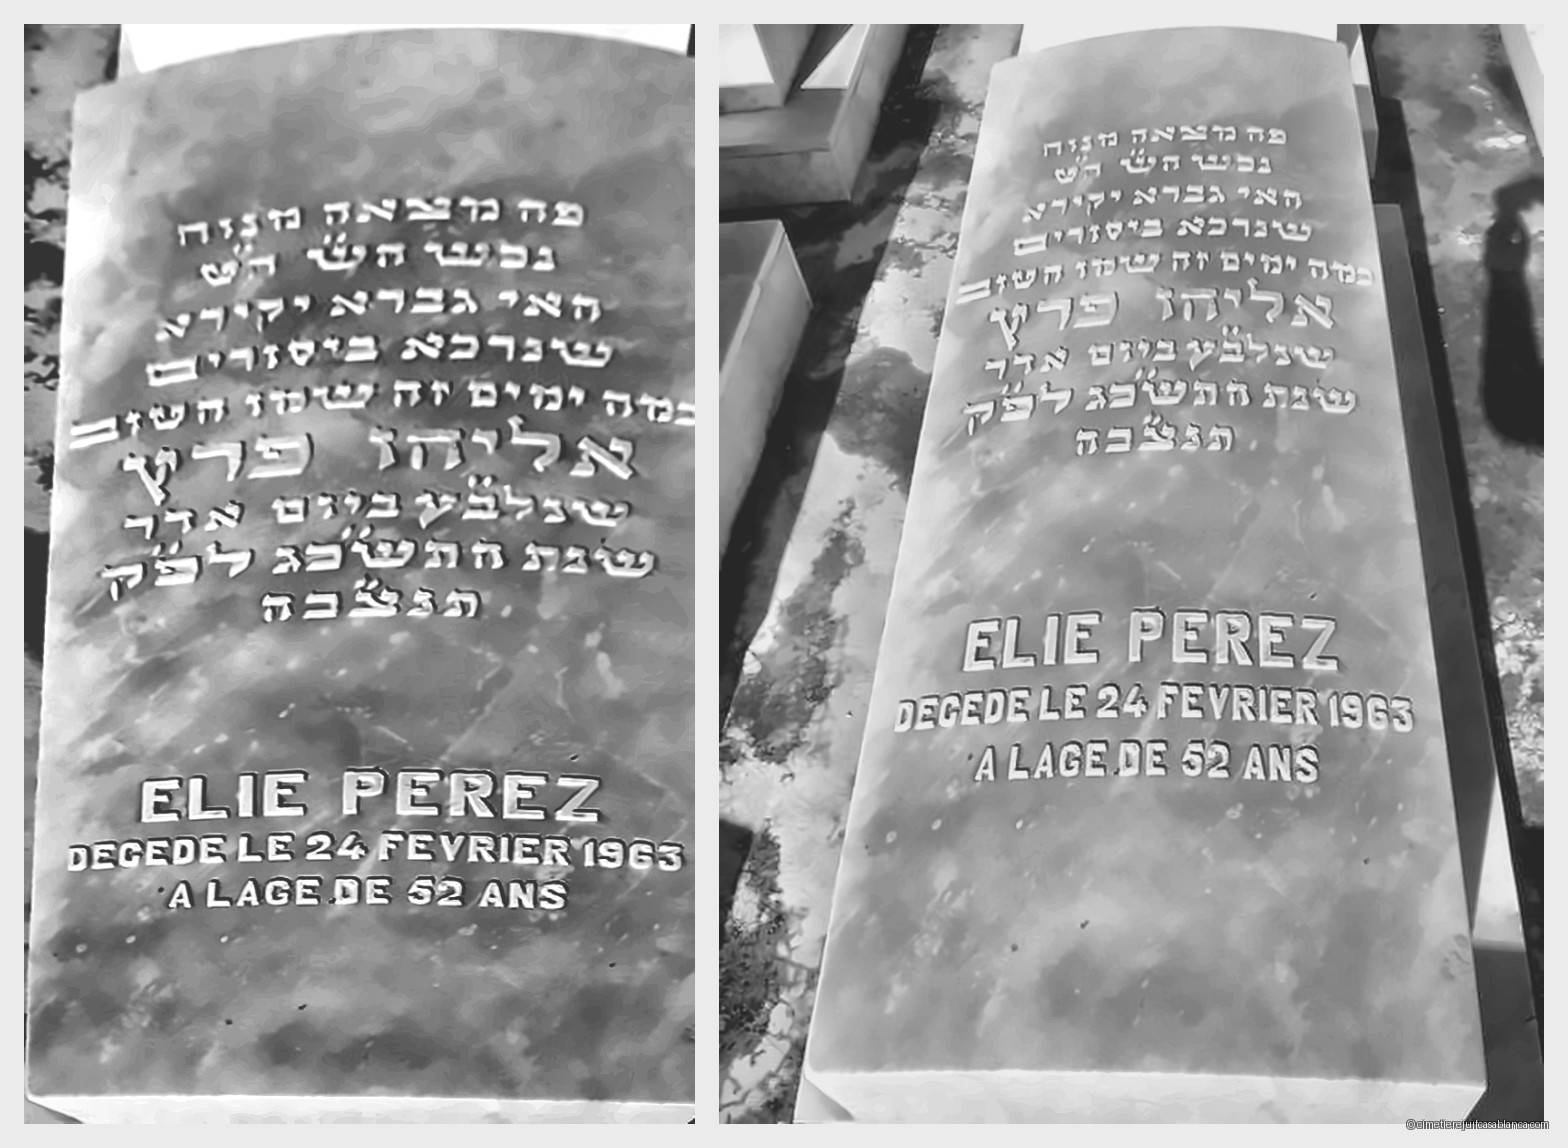 פה מצאה מנוח
נפש הש״ ה״ט
האי גברא יקירא
שנדכא ביסורים
כמה ימים וזה שמו הטוב
אליהו פרץ
שנלב״ע ביום אדר
שנת התש״כג לפ״ק
תנצ״בה
ELIE PEREZ
DECEDE LE 24 FEVRIER 1963
A LAGE DE 52 ANS
פה מצאה מנוח
נפש הש״ ה״ט
האי גברא יקירא
שנדכא ביסורים
כמה ימים וזה שמו הטוב
אליהו פרץ
שנלב״ע ביום אדר
שנת התש״כג לפ״ק
תנצ״בה
ELIE PEREZ
DECEDE LE 24 FEVRIER 1963
A LAGE DE 52 ANS
©cimetierejuifcasablanca.com